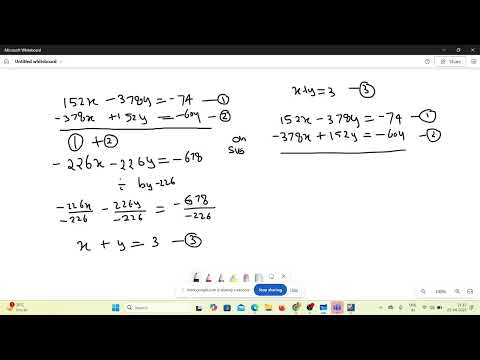 Microsoft Whiteboard
Untitled whiteboard
152x - 378y = -74 - ①
-378x + 152y = -604 - ②
① + ②
-226x - 226y = -678
÷ by -226
-226x/-226 - 226y/-226 = -678/-226
x + y = 3 - ③
on
SUB
x+y = 3 - ③
152x - 378y = -74 - ①
-378x + 152y = -604 - ②
Stop sharing
Search